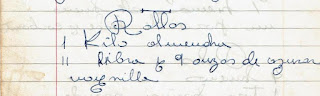 Rollos
1 Kilo almendra
11 libra y 9 onzas de azucar
vaynilla